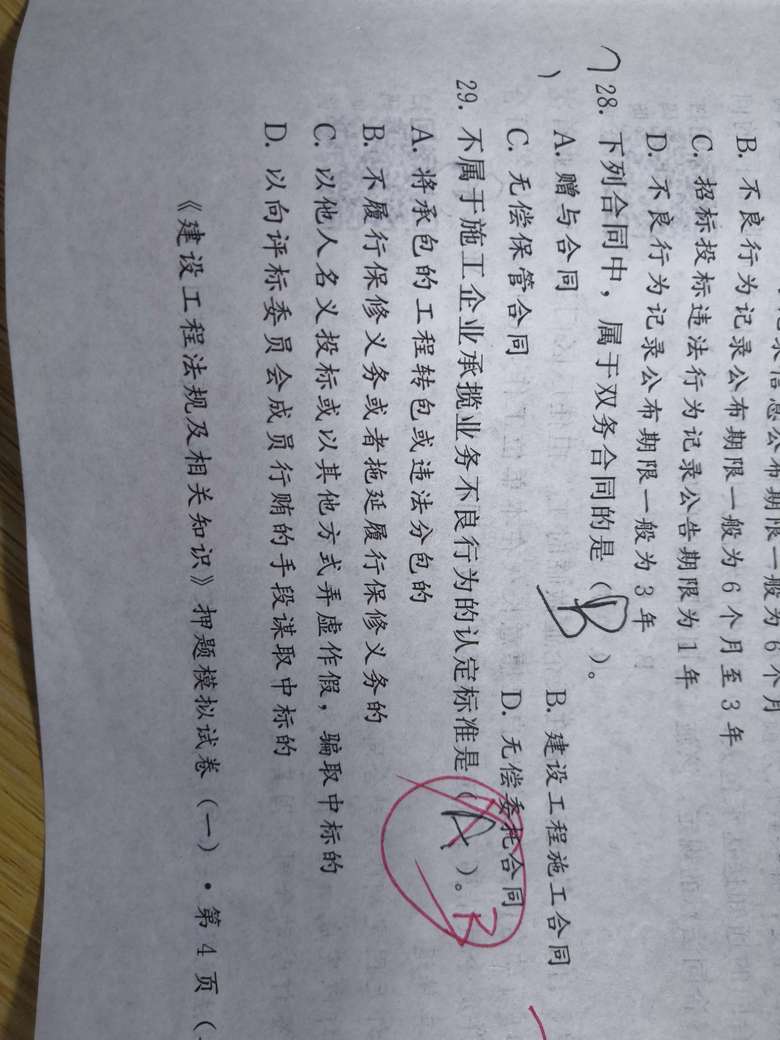 布期限一般为6个月
B. 不良行为记录公布期限一般为6个月至3年
C. 招标投标违法行为记录公告期限为1年
D. 不良行为记录公布期限一般为3年
28. 下列合同中，属于双务合同的是（B）。
A. 赠与合同 B. 建设工程施工合同
C. 无偿保管合同 D. 无偿委托合同
29. 不属于施工企业承揽业务不良行为的认定标准是（A）。B
A. 将承包的工程转包或违法分包的
B. 不履行保修义务或者拖延履行保修义务的
C. 以他人名义投标或以其他方式弄虚作假，骗取中标的
D. 以向评标委员会成员行贿的手段谋取中标的
《建设工程法规及相关知识》押题模拟试卷（一）·第4页（